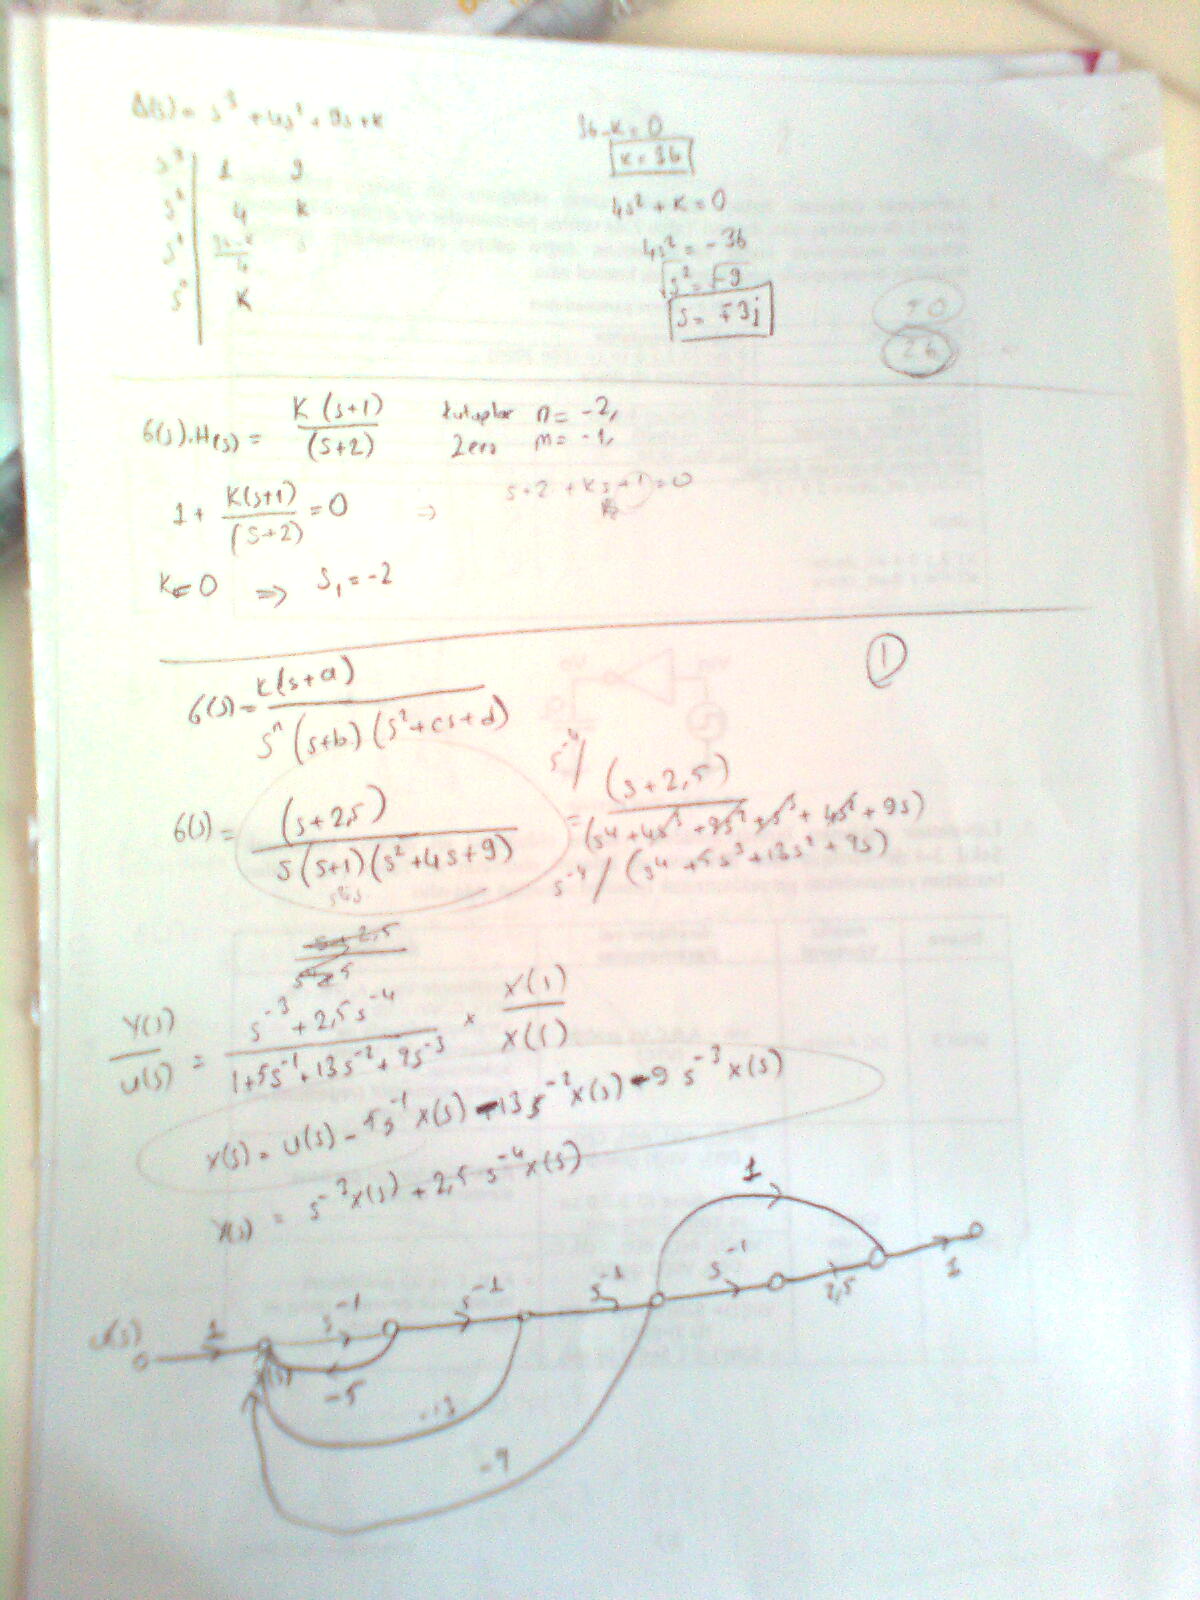 Δ(s) = s³ + 4s² + 9s + K
s³ | 1 9
s² | 4 K
s¹ | (36-K)/4
s⁰ | K
36-K = 0
K = 36
4s² + K = 0
4s² = -36
√s² = √-9
s = ∓3j
26
G(s).H(s) = K(s+1)/(s+2) kutuplar n = -2,
Zero m = -1,
1 + K(s+1)/(s+2) = 0 ⇒ s+2 + Ks+1 = 0
K
K = 0 ⇒ S₁ = -2
1
G(s) = K(s+a)/(sⁿ(s+b)(s²+cs+d))
G(s) = (s+2,5)/(s(s+1)(s²+4s+9)) = s⁻⁴/(s+2,5)/(s⁴+4s³+9s²+s³+4s²+9s)
s⁻⁴/(s⁴+5s³+13s²+9s)
s+2,5
Y(s)/U(s) = (s⁻³+2,5s⁻⁴)/(1+5s⁻¹+13s⁻²+9s⁻³) × X(1)/X(1)
X(s) = U(s) - 5s⁻¹X(s) - 13s⁻²X(s) - 9s⁻³X(s)
Y(s) = s⁻³X(s) + 2,5s⁻⁴X(s)
U(s) 1 s⁻¹ s⁻¹ s⁻¹ s⁻¹ 2,5 1
1
X(s)
-5
-13
-9